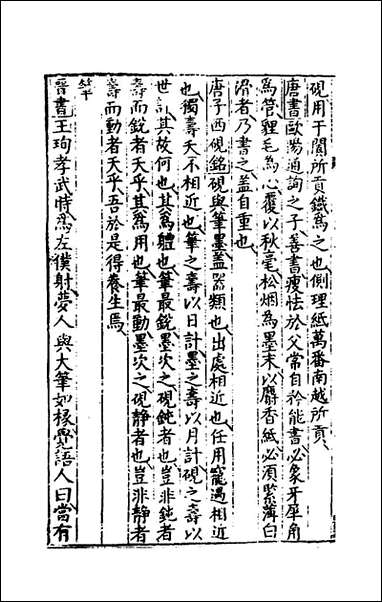 硯用于闐所貢鐵為之也側理紙萬番南越所貢
唐書歐陽通詢之子善書瘦怯於父常自矜能書必象牙犀角
為管狸毛為心覆以秋毫松烟為墨末以麝香紙必須緊薄白
滑者乃書之蓋自重也
唐子西硯銘硯與筆墨蓋器類也出處相近也任用寵遇相近
也獨壽夭不相近也筆之壽以日計墨之壽以月計硯之壽以
世計其故何也其為體也筆最銳墨次之硯鈍者也豈非鈍者
壽而銳者夭乎其為用也筆最動墨次之硯静者也豈非静者
壽而動者夭乎吾於是得養生焉
筆
晉書王珣孝武時為左僕射夢人與大筆如椽覺語人曰當有